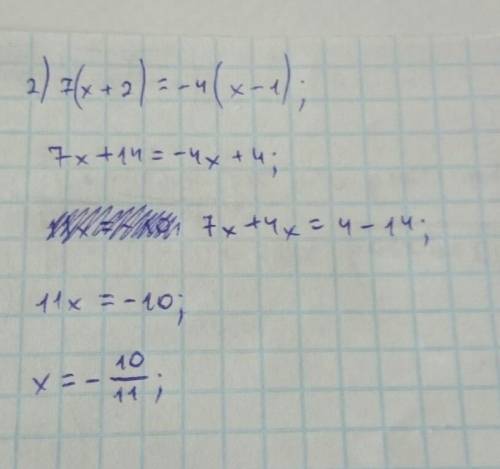 2) 7(x+2) = -4(x-1);
7x+14 = -4x+4;
7x+4x = 4-14;
11x = -10;
x = - 10/11;